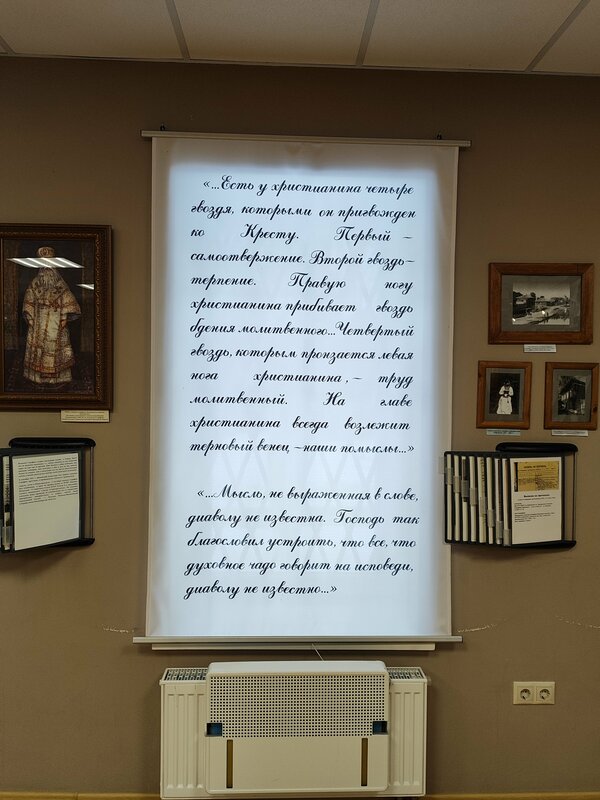 «...Есть у христианина четыре
гвоздя, которыми он пригвожден
ко Кресту. Первый –
самоотвержение. Второй гвоздь–
терпение. Правую ногу
христианина прибивает гвоздь
бдения молитвенного...Четвертый
гвоздь, которым пронзается левая
нога христианина, – труд
молитвенный. На главе
христианина всегда возлежит
терновый венец –наши помыслы...»
«...Мысль, не выраженная в слове,
диаволу не известна. Господь так
благословил устроить, что все, что
духовное чадо говорит на исповеди,
диаволу не известно...»